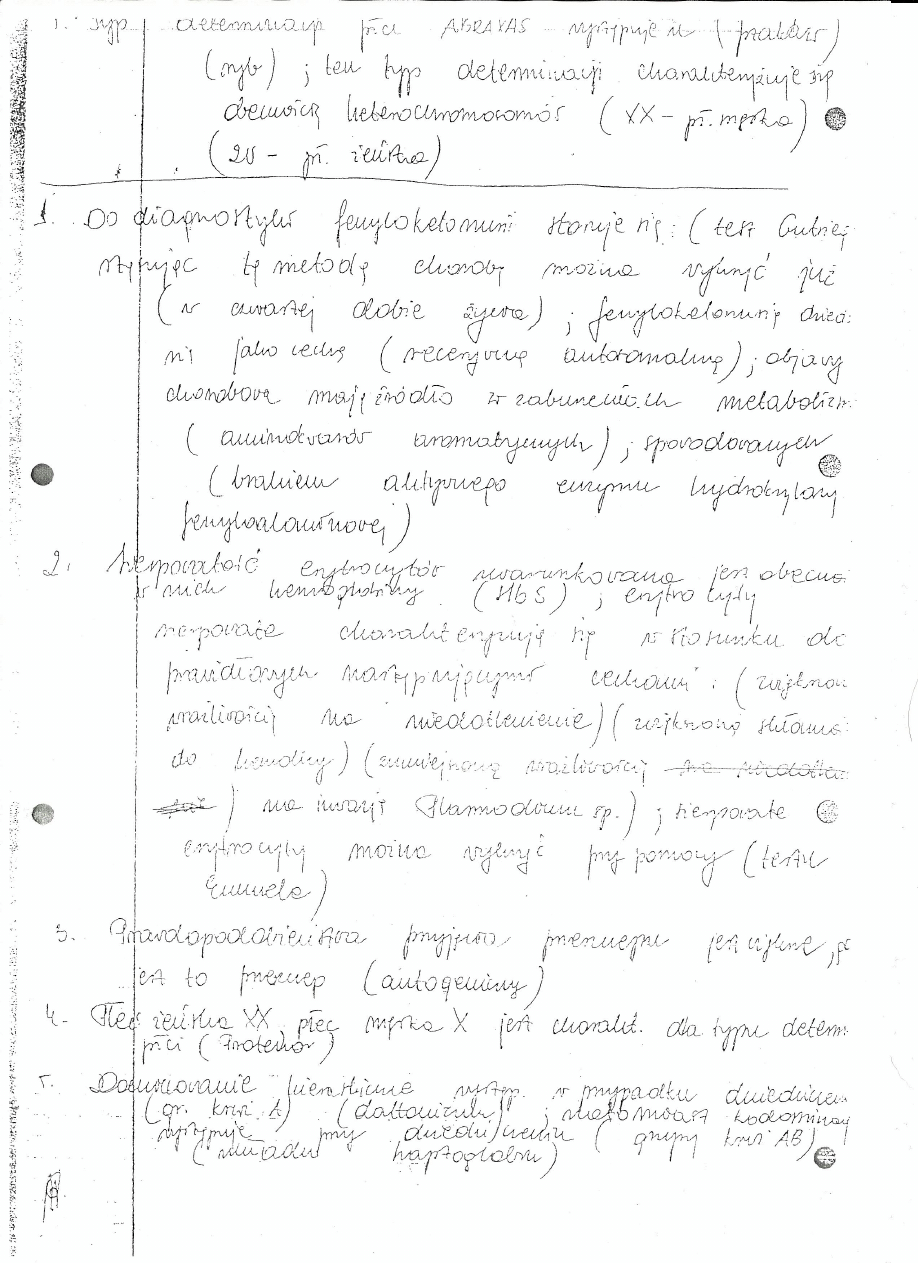 1. Typ determinacji płci ABRAXAS występuje u (ptaków)
(ryb) ; ten typ determinacji charakteryzuje się
obecnością heterochromosomów (XX – pł. męska)
(ZW – pł. żeńska)
1. Do diagnostyki fenyloketonurii stosuje się: (test Gutriego
stosując tę metodę chorobę można wykryć już
(w czwartej dobie życia) ; fenyloketonurię dziedzi
się jako cechę (recesywną autosomalną) ; objawy
chorobowe mają źródło w zaburzeniach metabolizm
(aminokwasów aromatycznych) ; spowodowanych
(brakiem aktywnego enzymu hydroksylazy
fenyloalaninowej)
2. Sierpowatość erytrocytów uwarunkowana jest obecno
w nich hemoglobiny (HbS) ; erytrocyty
sierpowate charakteryzują się w stosunku do
prawidłowych następującymi cechami : (większą
wrażliwością na niedotlenienie) (większą skłonno
do hemolizy) (zmniejszoną wrażliwością
) na inwazję Plasmodium sp.) ; sierpowate
erytrocyty można wykryć przy pomocy (testu
Emmela)
3. Prawdopodobieństwo przyjęcia przeszczepu jest większe, gdy
jest to przeszczep (autogeniczny)
4. Płeć żeńska XX, płeć męska X jest charakt. dla typu determ.
płci (Protenor)
5. Dominowanie występ. w przypadku dziedziczen
(gr. krwi A) (daltonizmu) ; natomiast kodominacj
występuje przy dziedziczeniu (grupy krwi AB)
(układu haptoglobin)